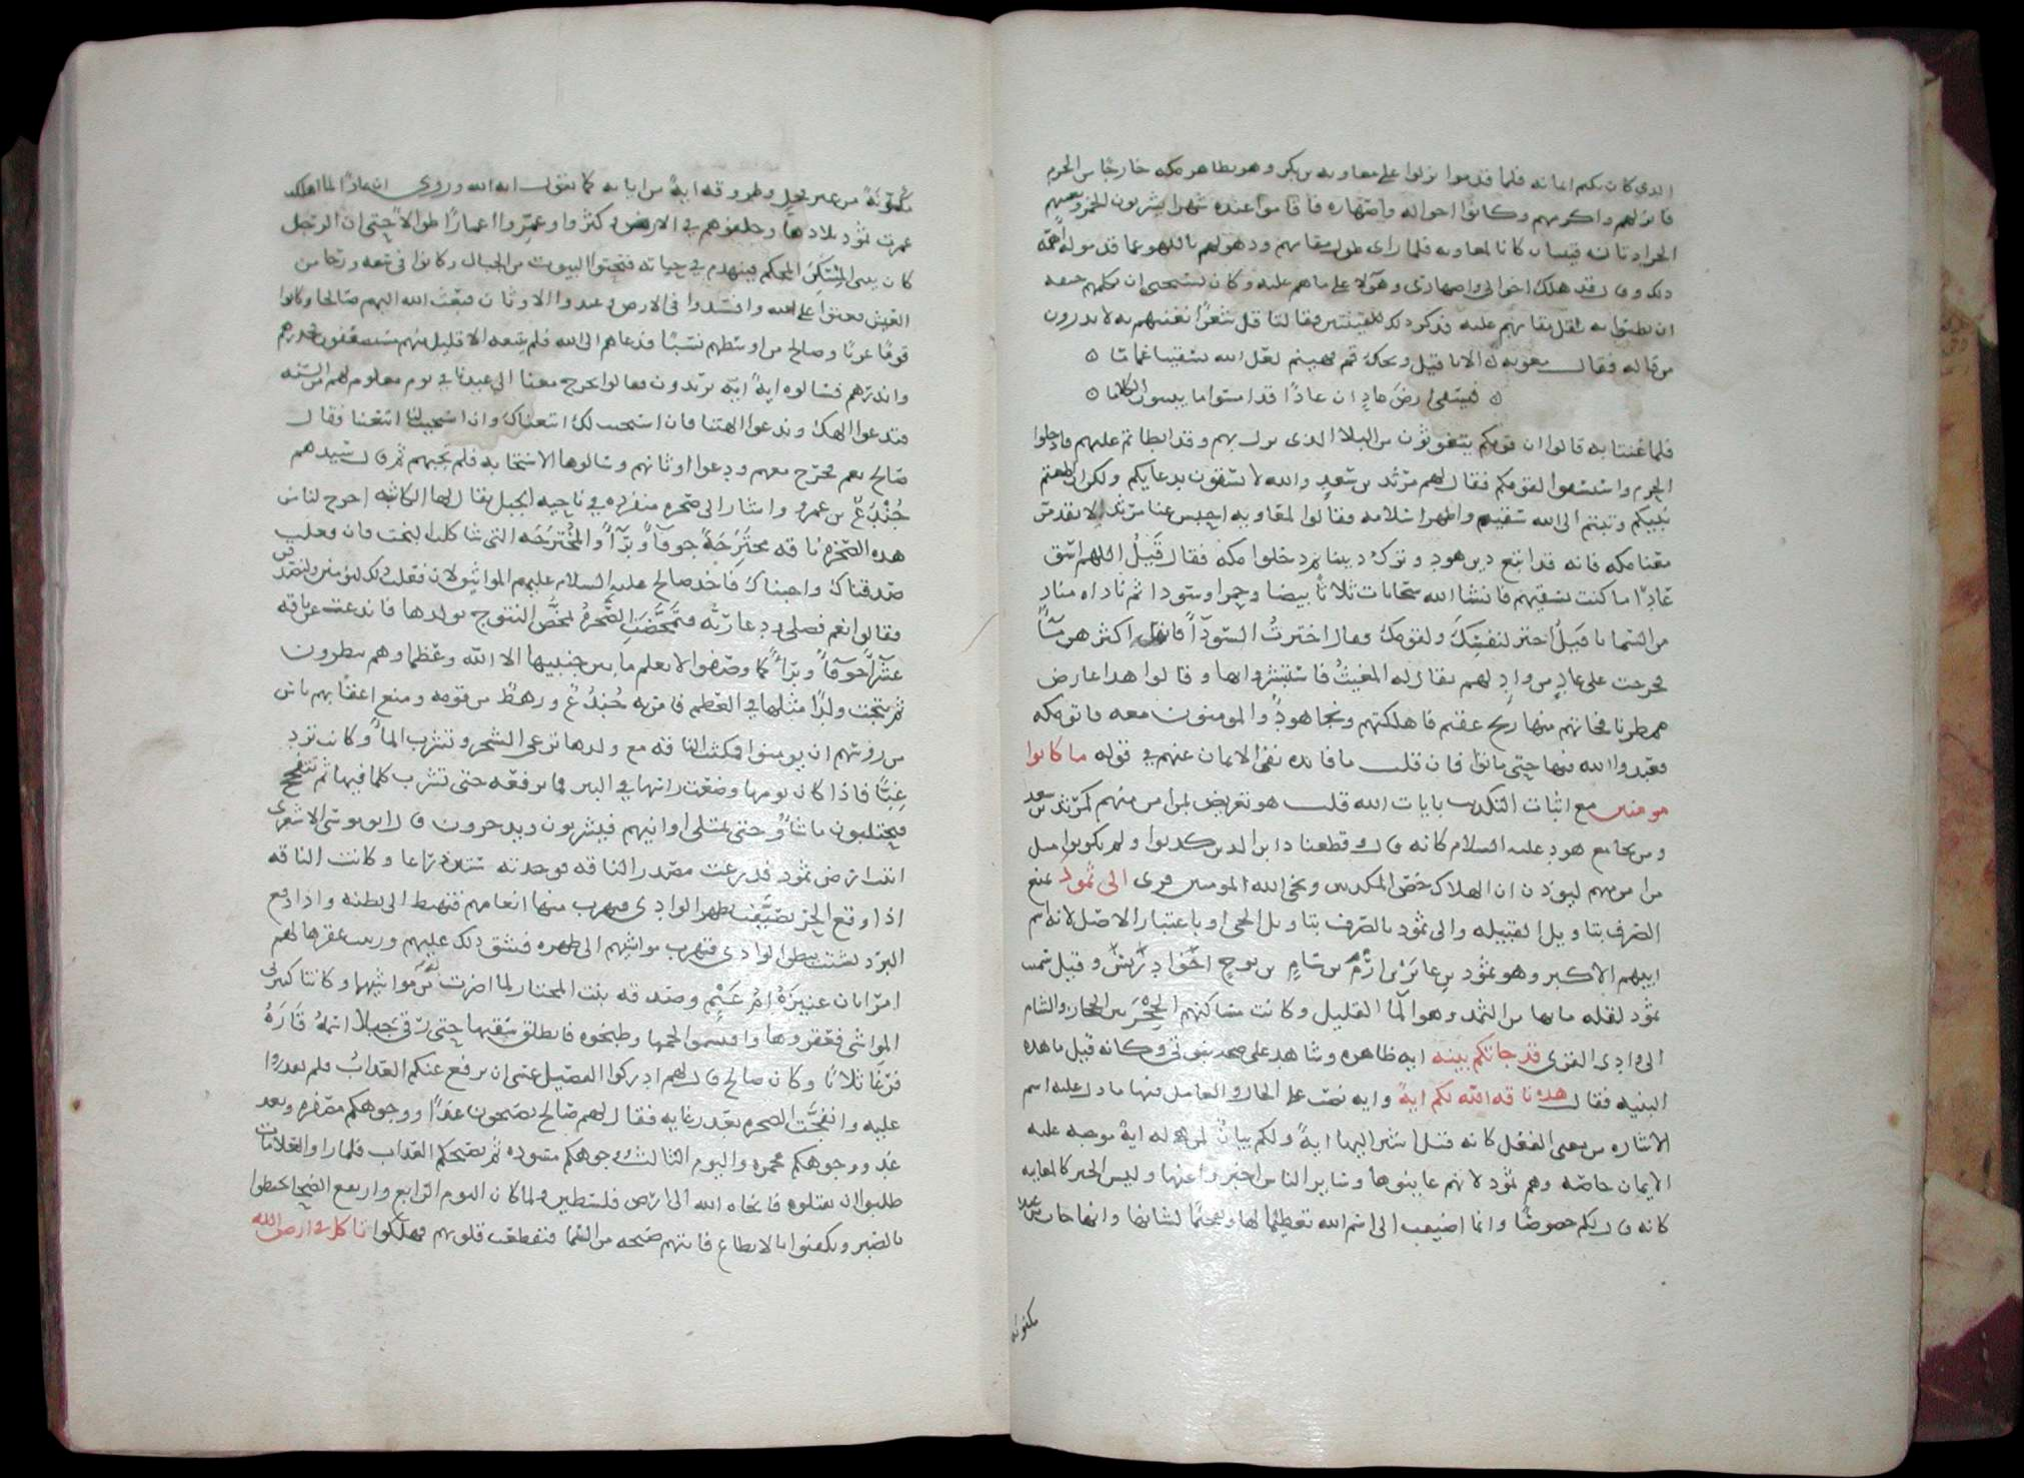 الذي كان يكتم ايمانه فلما قدموا نزلوا على معاويه بن بكر وهو بظاهر مكه خارجا من الحرم
فانزلهم واكرمهم وكانوا اخواله واصهاره فاقاموا عنده شهرا يشربون الخمر وتغنيهم
الجرادتان قينتان كانتا لمعاويه فلما راى طول مقامهم وذهولهم باللهو عما قدموا له اهمه
ذلك وقال قد هلك اخوالي واصهاري وهؤلا على ما هم عليه وكان يستحيي ان يكلمهم خيفه
ان يظنوا به ثقل مقامهم عليه فذكر ذلك للقينتين فقالتا قل شعرا نغنيهم به لا يدرون
من قاله فقال معويه ه الا يا قيل ويحك قم فهينم لعل الله يسقينا غماما ه
ه فيسقي ارض عاد ان عادا قد امسوا ما يبينون الكلاما ه
فلما غنتا به قالوا ان قومكم يتغوثون من البلا الذي نزل بهم وقد ابطاتم عليهم فادخلوا
الحرم واستسقوا لقومكم فقال لهم مرثد بن سعد والله لا تسقون بدعايكم ولكن ان اطعتم
نبيكم وتبتم الى الله سقيتم واظهر اسلامه فقالوا لمعاويه احبس عنا مرثدا لا يقدمن
معنا مكه فانه قد اتبع دين هود وترك ديننا ثم دخلوا مكه فقال قيل اللهم اسق
عادا ما كنت تسقيهم فانشا الله سحابات ثلاثا بيضا وحمرا وسودا ثم ناداه مناد
من السما يا قيل اختر لنفسك ولقومك فقال اخترت السودآ فانها اكثرهن مآ
فخرجت على عاد من واد لهم يقال له المغيث فاستبشروا بها وقالوا هذا عارض
ممطرنا فجاتهم منها ريح عقيم فاهلكتهم ونجا هود والمومنون معه فاتوا مكه
فعبدوا الله فيها حتى ماتوا فان قلت ما فايده نفي الايمان عنهم في قوله ما كانوا
مومنين مع اثبات التكذيب بايات الله قلت هو تعريض بمن امن منهم كمرثد بن سعد
ومن نجا مع هود عليه السلام كانه قال وقطعنا دابر الذين كذبوا ولم يكونوا مثل
من امن منهم ليوذن ان الهلاك خص المكذبين ونجى الله المومنين قرى الى ثمود بمنع
الصرف بتاويل القبيله والى ثمود بالصرف بتاويل الحي او باعتبار الاصل لانه اسم
ابيهم الاكبر وهو ثمود بن عابر بن ارم بن سام بن نوح وقيل سميت
ثمود لقله مايها من الثمد وهو المآ القليل وكانت مساكنهم الحجر بين الحجاز والشام
الى وادي القرى قد جاتكم بينه ايه ظاهره وشاهد على صحه نبوتي وكانه قيل ما هذه
البينه فقال هذه ناقه الله لكم ايه وايه نصب على الحال والعامل فيها ما دل عليه اسم
الاشاره من معنى الفعل كانه قيل اشير اليها ايه ولكم بيان لمن هي له ايه موجبه عليه
الايمان خاصه وهم ثمود لانهم عاينوها وساير الناس اخبروا عنها وليس الخبر كالمعاينه
كانه قال لكم خصوصا وانما اضيفت الى اسم الله تعظيما لها وتفخيما لشانها وانها جات من عنده
مكونه
مكونه من غير فحل وطروقه ايه من اياته كما تقول ايه الله وروي ان عادا لما اهلكت
عمرت ثمود بلادها وخلفوهم في الارض وكثروا وعمروا اعمارا طوالا حتى ان الرجل
كان يبني المسكن المحكم فينهدم في حياته فنحتوا البيوت من الجبال وكانوا في سعه ورخا من
العيش فعتوا على الله وافسدوا في الارض وعبدوا الاوثان فبعث الله اليهم صالحا وكانوا
قوما عربا وصالح من اوسطهم نسبا فدعاهم الى الله فلم يتبعه الا قليل منهم مستضعفون فحذرهم
وانذرهم فسالوه ايه فقال ايه ايه تريدون فقالوا تخرج معنا الى عيدنا في يوم معلوم لهم من السنه
فتدعوا الهك وندعوا الهتنا فان استجيب لك اتبعناك وان استجيب لنا اتبعتنا فقال
صالح نعم فخرج معهم ودعوا اوثانهم وسالوها الاستجابه فلم تجبهم ثم قال سيدهم
جندع بن عمرو واشار الى صخره منفرده في ناحيه الجبل يقال لها الكاثبه اخرج لنا من
هذه الصخره ناقه مخترجه جوفآ وبرآ والمخترجه التي شاكلت البخت فان فعلت
صدقناك واجبناك فاخذ صالح عليه السلام عليهم المواثيق لان فعلت ذلك لتومنن ولتصدقن
فقالوا نعم فصلى ودعا ربه فتمخضت الصخره تمخض النتوج بولدها فانصدعت عن ناقه
عشرآ جوفآ وبرآ كما وصفوا لا يعلم ما بين جنبيها الا الله وعظماوهم ينظرون
ثم نتجت ولدا مثلها في العظم فامن به جندع ورهط من قومه ومنع اعقابهم ناس
من روسهم ان يومنوا فمكثت الناقه مع ولدها ترعى الشجر وتشرب المآ وكانت ترد
غبا فاذا كان يومها وضعت راسها في البير فما ترفعه حتى تشرب كلما فيها ثم تتفحج
فيحتلبون ما شآوا حتى تمتلي اوانيهم فيشربون ويدخرون قال ابو موسى الاشعري
اتيت ارض ثمود فذرعت مصدر الناقه فوجدته ستين ذراعا وكانت الناقه
اذا وقع الحر تصيفت بظهر الوادي فتهرب منها انعامهم فتهبط الى بطنه واذا وقع
البرد تشتت ببطن الوادي فتهرب مواشيهم الى ظهره فشق ذلك عليهم وزينت عقرها لهم
امراتان عنيزه ام غنم وصدقه بنت المختار لما اضرت به من مواشيهما وكانتا كثيرتي
المواشي فعقروها واقتسموا لحمها وطبخوه فانطلق سقبها حتى رقى جبلا اسمه قاره
فرغا ثلاثا وكان صالح قال لهم ادركوا الفصيل عسى ان يرفع عنكم العذاب فلم يقدروا
عليه وانفجت الصخره بعد رغايه فقال لهم صالح تصبحون غدا ووجوهكم مصفره وبعد
غد ووجوهكم محمره واليوم الثالث ووجوهكم مسوده ثم يصبحكم العذاب فلما راوا العلامات
طلبوا ان يقتلوه فانجاه الله الى ارض فلسطين ولما كان اليوم الرابع وارتفع الضحا تحنطوا
بالصبر وتكفنوا بالانطاع فاتتهم صيحه من السما فتقطعت قلوبهم فهلكوا تاكل في ارض الله